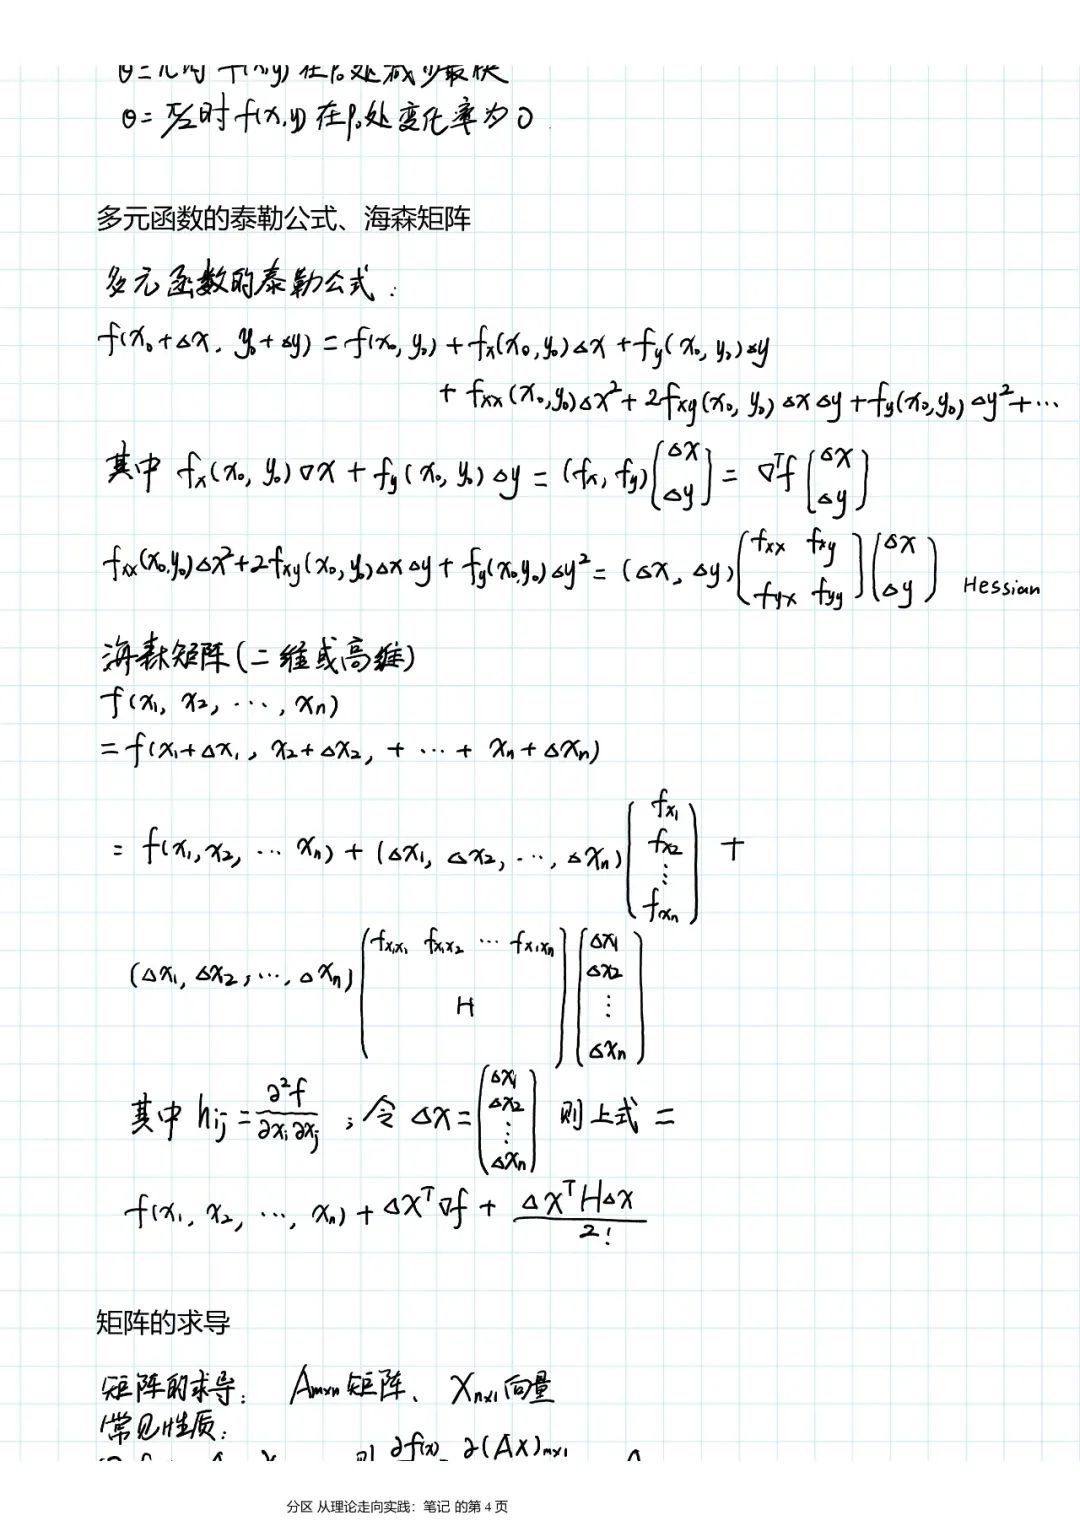 θ=π时 f(x,y) 在p₀处减少最快
θ= π/2时 f(x,y) 在p₀处变化率为0
多元函数的泰勒公式、海森矩阵
多元函数的泰勒公式:
f(x₀+Δx, y₀+Δy) = f(x₀, y₀) + fx(x₀,y₀)Δx + fy(x₀, y₀)Δy
+ fxx(x₀,y₀)Δx² + 2fxy(x₀, y₀)ΔxΔy + fy(x₀,y₀)Δy² + ⋯
其中 fx(x₀, y₀)∇x + fy(x₀, y₀)Δy = (fx, fy)(Δx Δy) = ∇ᵀf (Δx Δy)
fxx(x₀,y₀)Δx²+2fxy(x₀,y₀)ΔxΔy + fy(x₀,y₀)Δy² = (Δx, Δy)(fxx fxy fyx fyy)(Δx Δy) Hessian
海森矩阵(二维或高维)
f(x₁, x₂, ⋯, xn)
= f(x₁+Δx₁, x₂+Δx₂, + ⋯ + xn+Δxn)
= f(x₁,x₂, ⋯ xn) + (Δx₁, Δx₂, ⋯, Δxn)(fx₁ fx₂ ⋮ fxn) +
(Δx₁, Δx₂, ⋯, Δxn)(fx₁x₁ fx₁x₂ ⋯ fx₁xn H)(Δx₁ Δx₂ ⋮ Δxn)
其中 hij = ∂²f/∂xi∂xj ; 令 Δx = (Δx₁ Δx₂ ⋮ Δxn) 则上式 =
f(x₁, x₂, ⋯, xn) + Δxᵀ∇f + ΔxᵀHΔx/2!
矩阵的求导
矩阵的求导: Am×n矩阵、Xn×1向量
常见性质:
则 ∂f(x) ∂(AX)m×1
分区 从理论走向实践:笔记 的第 4 页